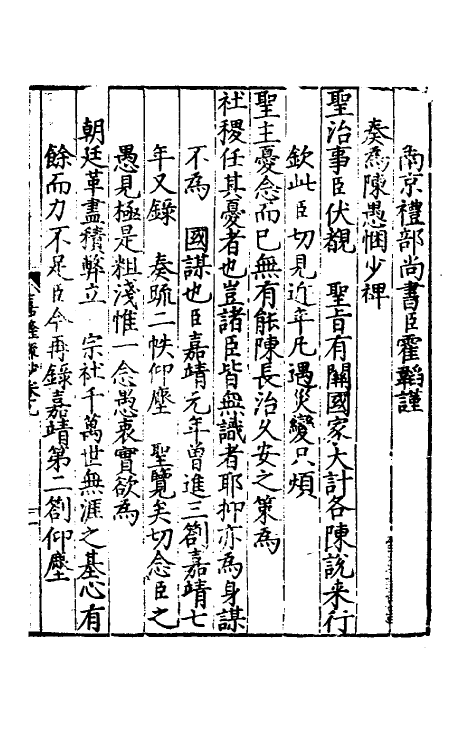 南京禮部尚書臣霍韜謹
奏爲陳愚悃少裨
聖治事臣伏覩　聖旨有關國家大計各陳說来行
欽此臣切見近年凡遇災變只煩
聖主憂念而已無有能陳長治久安之策為
社稷任其憂者也豈諸臣皆無識者耶抑亦為身謀
不為　國謀也臣嘉靖元年曽進三劄嘉靖七
年又錄　奏疏二帙仰塵　聖覽矣切念臣之
愚見極是粗淺惟一念愚衷實欲為
朝廷革盡積弊立　宗社千萬世無涯之基心有
餘而力不足臣今再錄嘉靖第二劄仰塵